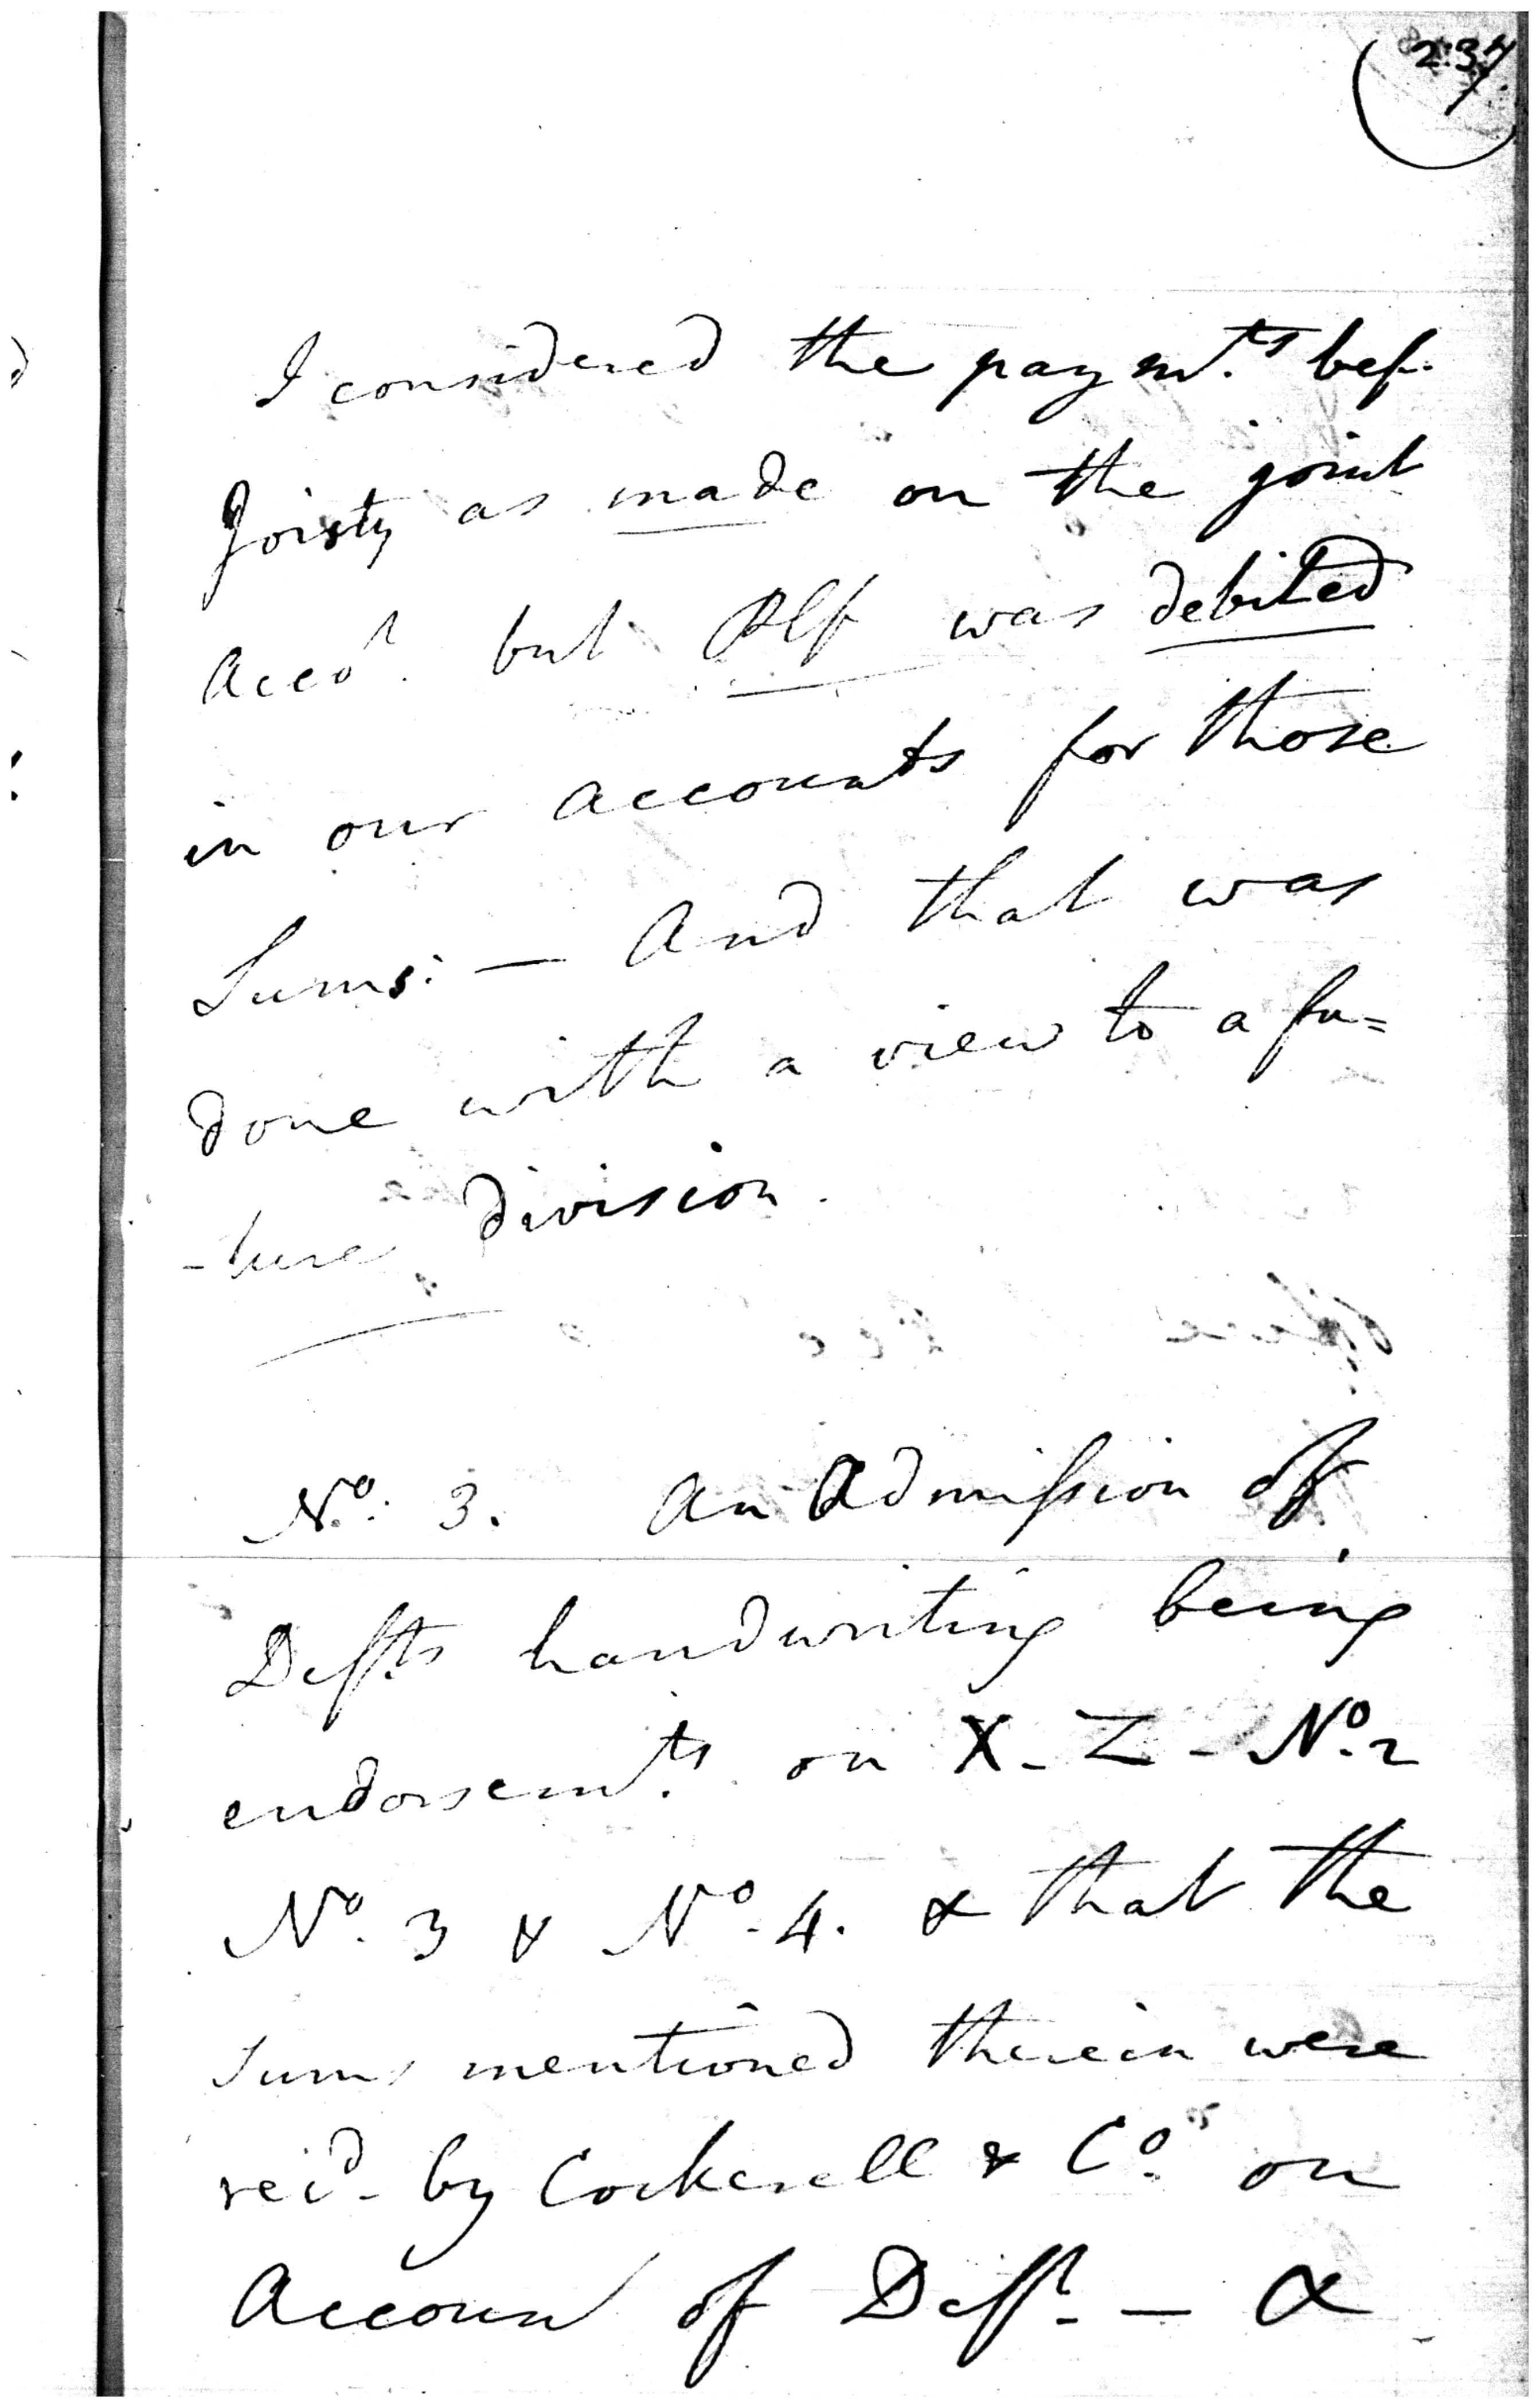 237
I considered the paymts bef.
Joisty as made on the joint
Acco.t but Plf was debited
in our accounts for those
Sums: — And that was
done with a view to a fu=
-ture division.
No. 3. An Admission of
Defts handwriting being
endorsemts on X - Z - No. 2
No. 3 & No. 4. & that the
sums mentioned therein were
recd. by Cockerell & Co. on
Account of Deft. — &